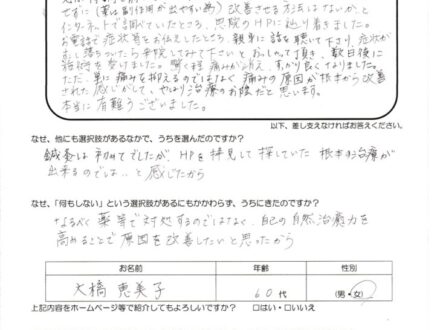 せずに(薬は副作用が出やすい為)改善させる方法はないか、と
インターネットで調べていたところ、貴院のHPに辿り着きました。
お電話で症状等をお伝えしたところ、親身に話を聴いて下さり、症状が
少し落ちついたら来院してみて下さいとおっしゃって頂き、数日後に
施術を受けました。驚く程痛みが消え、すっかり良くなりました。
ただ単に痛みを抑えるのではなく痛みの原因が根本から改善
された感じがして、やはり治療のお陰だと思います。
本当に有難うございました。
以下、差し支えなければお答えください。
なぜ、他にも選択肢があるなかで、うちを選んだのですか?
鍼灸は初めてでしたがHPを拝見して探していた根本的治療が
出来るのでは‥と感じたから
なぜ、「何もしない」という選択肢があるにもかかわらず、うちにきたのですか?
なるべく薬等で対処するのではなく、自己の自然治癒力を
高めることで原因を改善したいと思ったから
お名前 年齢 性別
大橋 恵美子 60代 (男・女)
上記内容をホームページ等で紹介してもよろしいですか? □はい・□いいえ